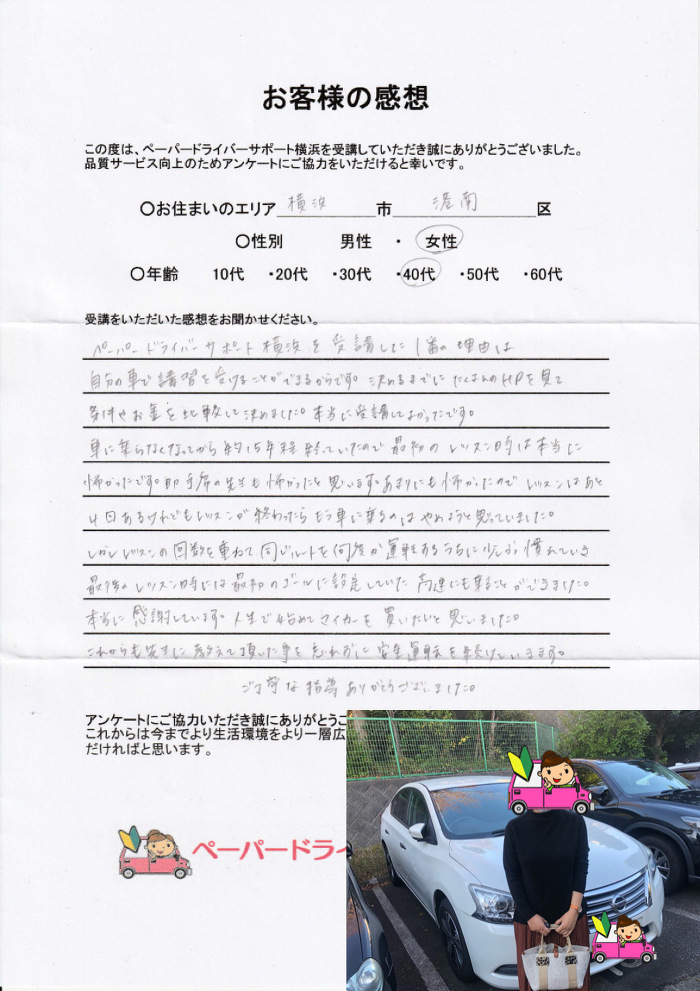 お客様の感想
この度は、ペーパードライバーサポート横浜を受講していただき誠にありがとうございました。
品質サービス向上のためアンケートにご協力をいただけると幸いです。
〇お住まいのエリア 横浜 市 港南 区
〇性別 男性 ・ 女性
〇年齢 10代 ・20代 ・30代 ・40代 ・50代 ・60代
受講をいただいた感想をお聞かせください。
ペーパードライバーサポート横浜を受講した1番の理由は
自分の車で講習を受けることができるからです。決めるまでにたくさんのHPを見て
条件やお金を比較して決めました。本当に受講してよかったです。
車に乗らなくなってから約15年経っていたので最初のレッスン時は本当に
怖かったです。助手席の先生も怖かったと思います。あまりにも怖かったのでレッスンはあと
4日あるけれどもレッスンが終わったらもう車に乗るのはやめようと思っていました。
しかしレッスンの回数を重ねて同じルートを何度か運転するうちに少しずつ慣れていき
最後のレッスン時には最初のゴールに設定していた高速にも乗ることができました。
本当に感謝しています。人生で始めてマイカーを買いたいと思いました。
これからも先生に教えて頂いた事を忘れずに安全運転を続けていきます。
ご丁寧な指導ありがとうございました。
アンケートにご協力いただき誠にありがとうご
これからは今までより生活環境をより一層広
だければと思います。
ペーパードライ